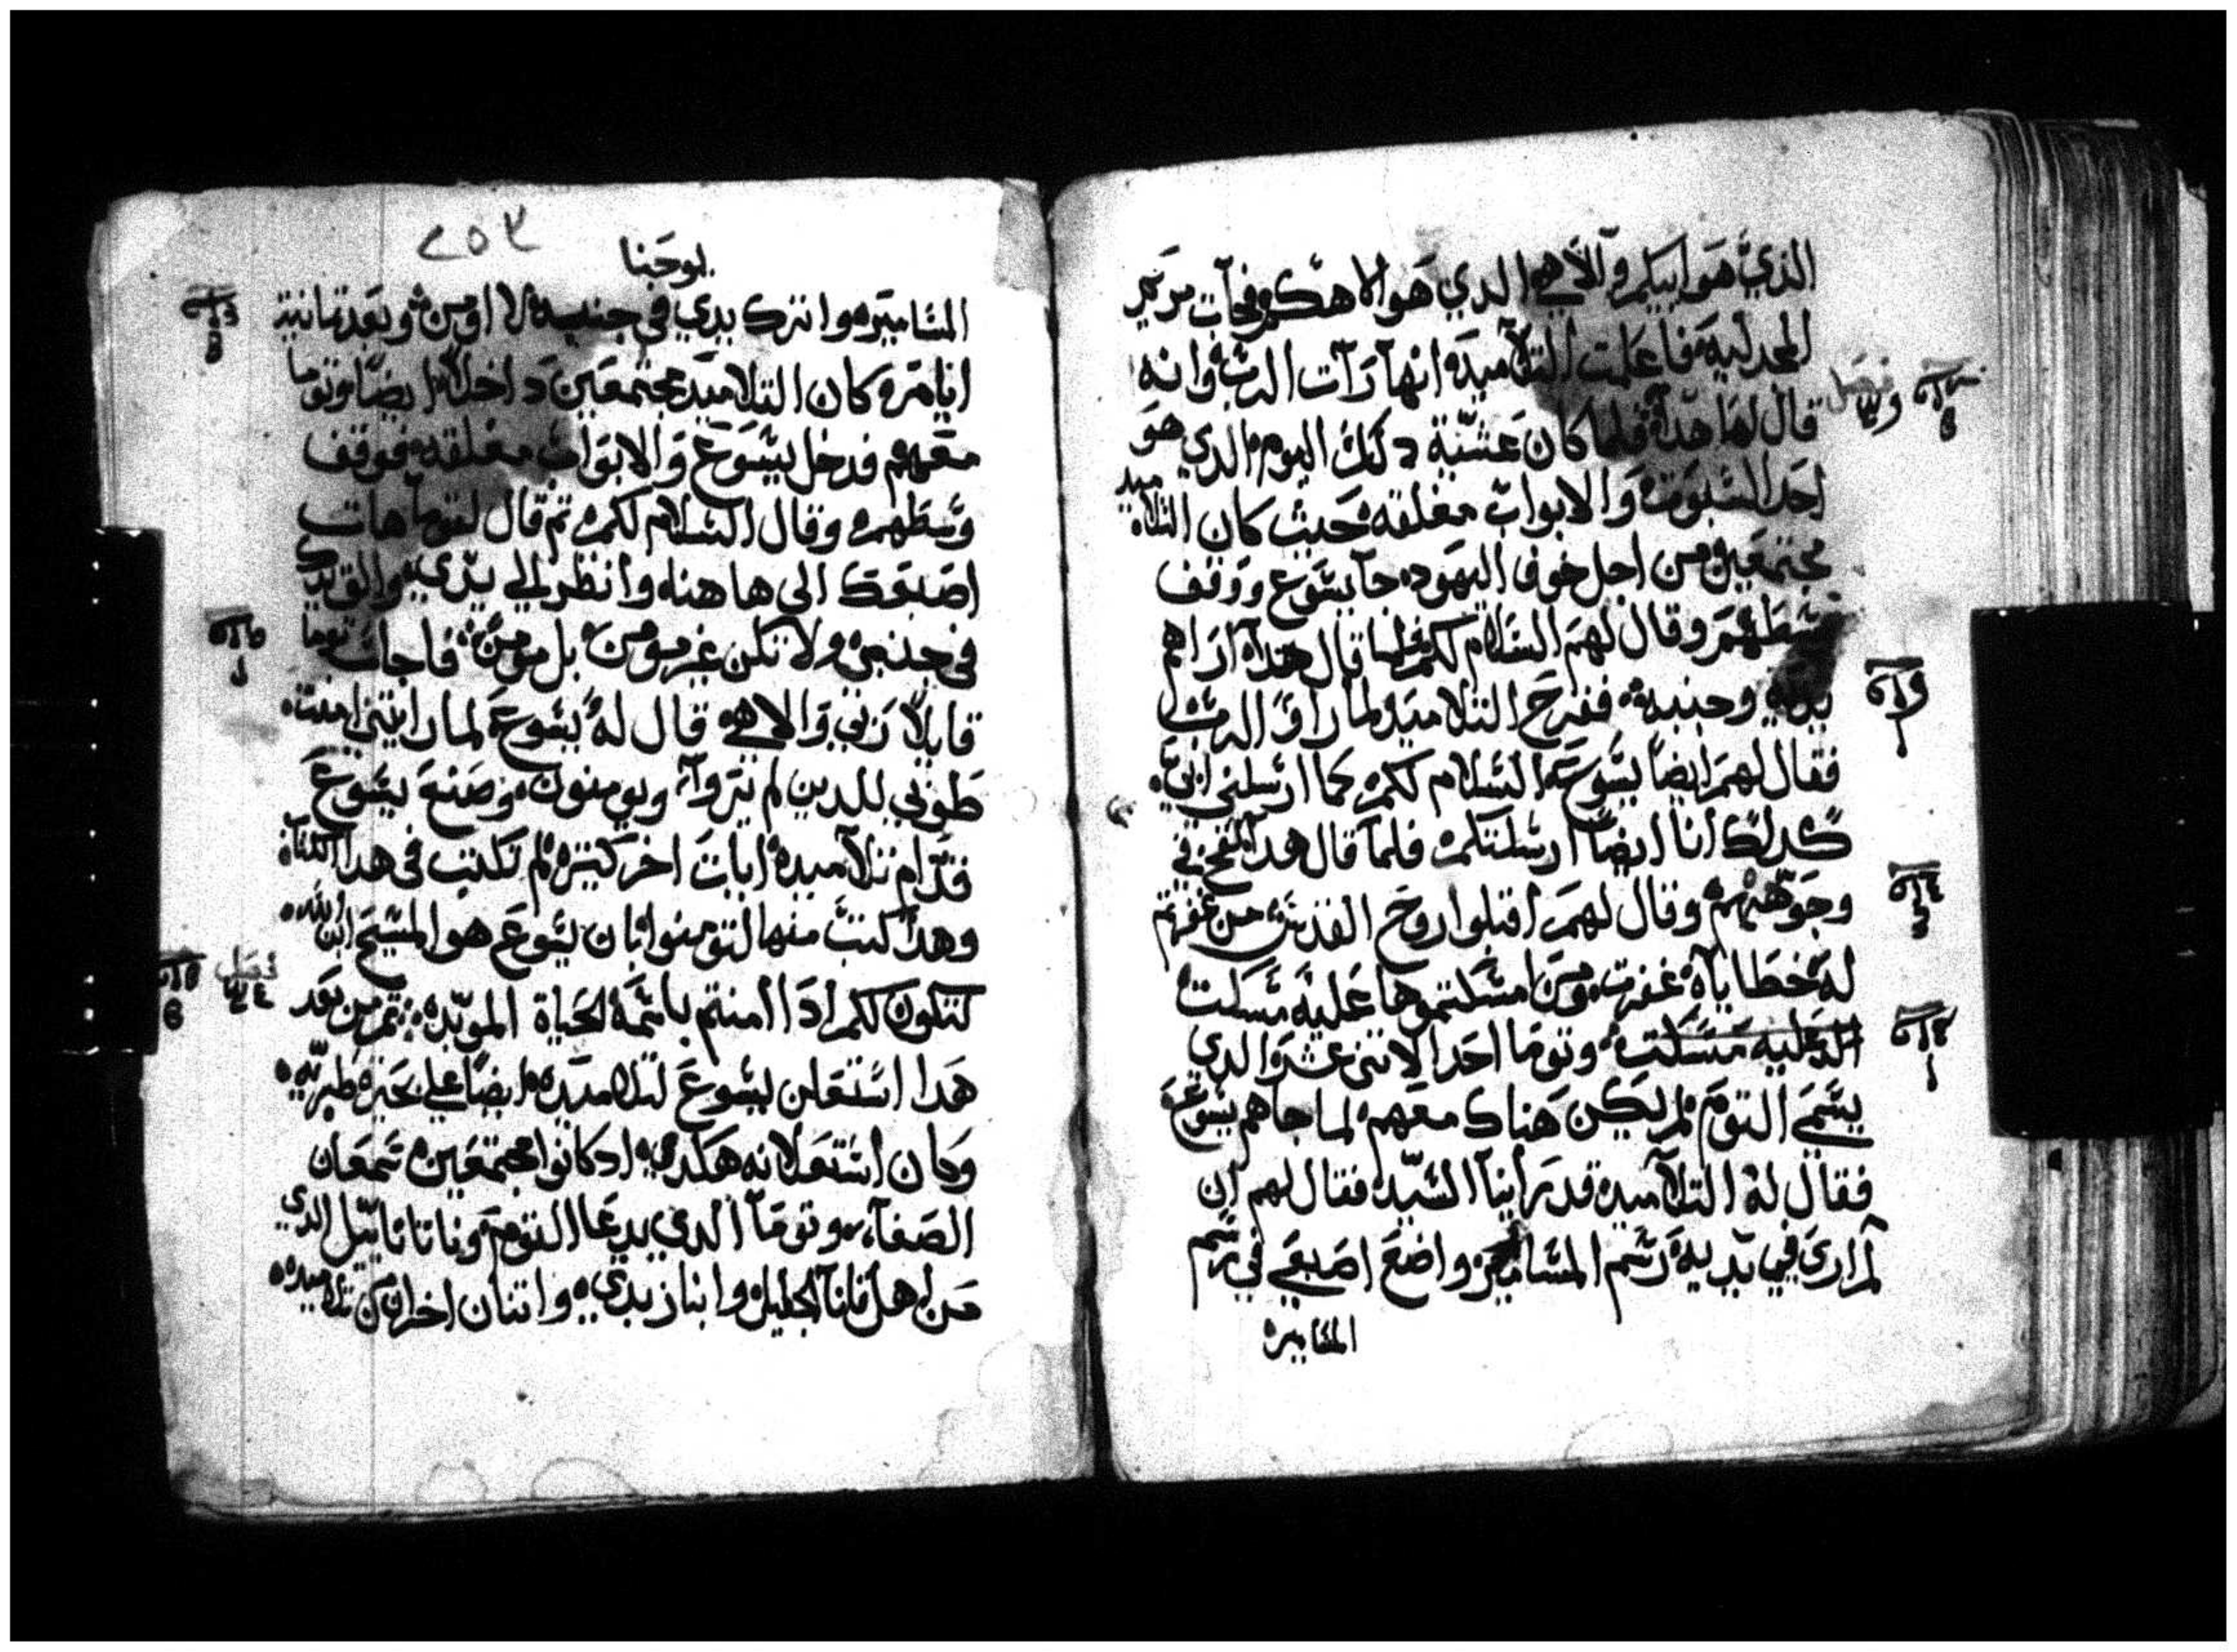 الذي هو ابيكم والاهي الدي هو الاهكم فجآت مريم
المجدليه فاعلمت التلاميده انها رآت الرب وانه
قال لها هدا فلما كان عشية دلك اليوم الدي هو
احد السبوت والابواب مغلقه حيث كان التلاميد
مجتمعين من اجل خوف اليهود جآ يسوع ووقف
وسطهم وقال لهم السلام لكم فلما قال هدا اراهم
يديه وجنبه ففرح التلاميد لما راو الرب
فقال لهم ايضا يسوع السلام لكم كما ارسلني ابي
كدلك انا ايضا ارسلتكم فلما قال هدا نفخ في
وجوههم وقال لهم اقبلوا روح القدس من غفرتم
له خطاياه غفرت ومن امسكتموها عليه مسكت
وتوما احد الاتني عشر الدي
يسمي التوم لم يكن هناك معهم لما جاهم يسوع
فقال له التلاميد قد راينا السيد فقال لهم ان
لم اري في يديه رسم المسامير واضع اصبعي في رسم
المسامير
٢٥٣
يوحنا
المسامير واترك يدي في جنبه لا اومن وبعد تمانية
ايام كان التلاميد مجتمعين داخلا ايضا وتوما
معهم فدخل يسوع والابواب مغلقه فوقف
وسطهم وقال السلام لكم تم قال لتوما هات
اصبعك الي هاهنا وانظر الي يدي والق يدك
في جنبي ولا تكن غير مومن بل مومن فاجاب توما
قايلا ربي والاهي قال له يسوع لما رايتني امنت
طوبي للدين لم يروا ويومنون وصنع يسوع
قدام تلاميده ايات اخر كتيره لم تكتب في هدا الكتاب
وهدا كتب منها لتومنوا بان يسوع هو المسيح ابن الله
لتكون لكم ادا امنتم باسمه الحياة الموبده تم من بعد
هدا استعلن يسوع لتلاميده ايضا علي بحيرة طبريه
وكان استعلانه هكدي اد كانوا مجتمعين سمعان
الصفا وتوما الدي يدعا التوم وناتاناييل الدي
من اهل قانا الجليل وابنا زبدي واتنان اخران من تلاميده